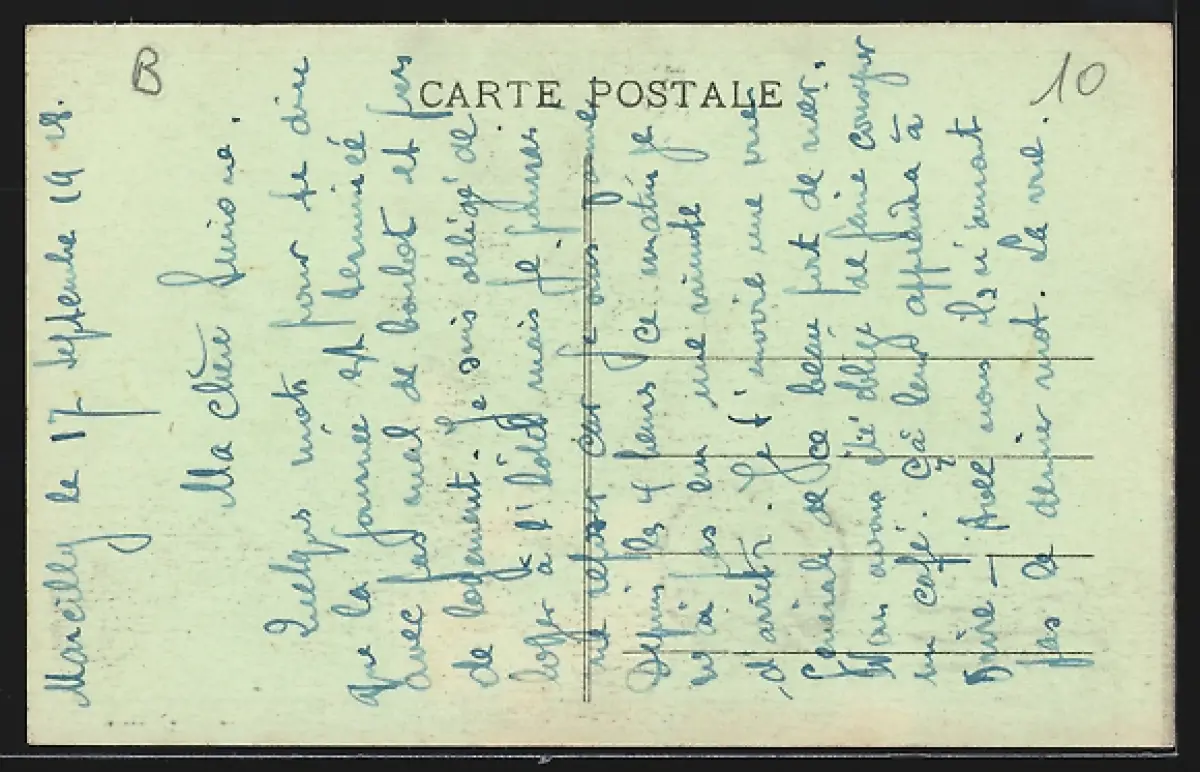 CARTE POSTALE
B
10
Marcilly le 17 septembre 19 28.
Ma chère
Quelques mots pour te dire
que la journée est terminée
avec pas mal de boulot et pas
de logement. Je suis obligé de
loger à l'hôtel mais je pense
me car je suis
Depuis les 4 heures ce matin je
n'ai pas eu une minute
d'arrêt. Je t'envoie une vue
générale de ce beau port de mer.
Nous avons été obligé de faire
un café. Ça leur apprendra à
vivre — avec nous ils n'auront
pas le dernier mot. La vie.